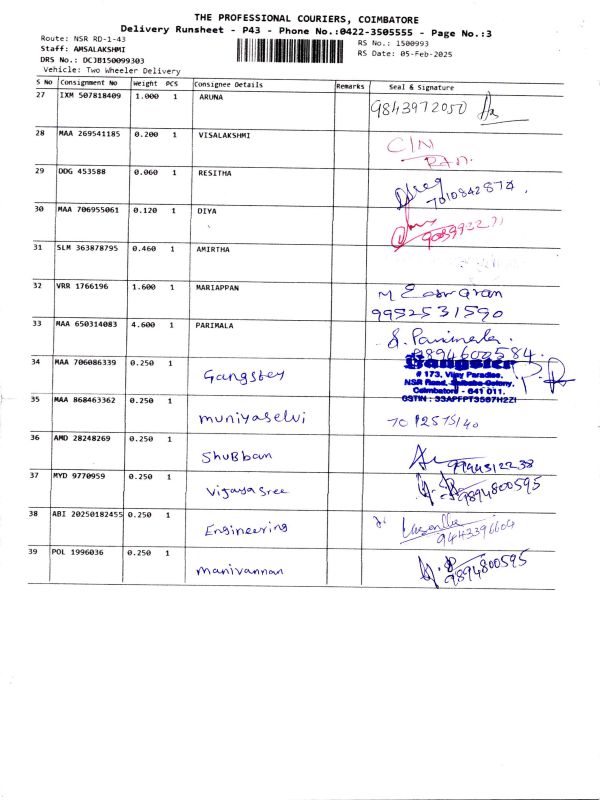 THE PROFESSIONAL COURIERS, COIMBATORE
Delivery Runsheet - P43 - Phone No.:0422-3505555 - Page No.:3
Route: NSR RD-1-43 RS No.: 1500993
Staff: AMSALAKSHMI RS Date: 05-Feb-2025
DRS No.: DCJB150099303
Vehicle: Two Wheeler Delivery
S No Consignment No Weight PCS Consignee Details Remarks Seal & Signature
27 IXM 507818409 1.000 1 ARUNA 9843972050
28 MAA 269541185 0.200 1 VISALAKSHMI C/N
29 DDG 453588 0.060 1 RESITHA 7010842874.
30 MAA 706955061 0.120 1 DIYA
31 SLM 363878795 0.460 1 AMIRTHA
32 VRR 1766196 1.600 1 MARIAPPAN M Easwaran
9952531590
33 MAA 650314083 4.600 1 PARIMALA S. Parimala
9894600584.
34 MAA 706086339 0.250 1 Gangstey Gangster
# 173, Vijay Paradise,
NSR Road, Saibaba Colony,
Coimbatore - 641 011.
GSTIN : 33APFPT3587H2ZI
35 MAA 868463362 0.250 1 muniyaselvi
36 AMD 28248269 0.250 1 Shubban
37 MYD 9770959 0.250 1 Vijayasree 9894800595
38 ABI 20250182455 0.250 1 Engineering 9443396604
39 POL 1996036 0.250 1 manivannan 9894800595